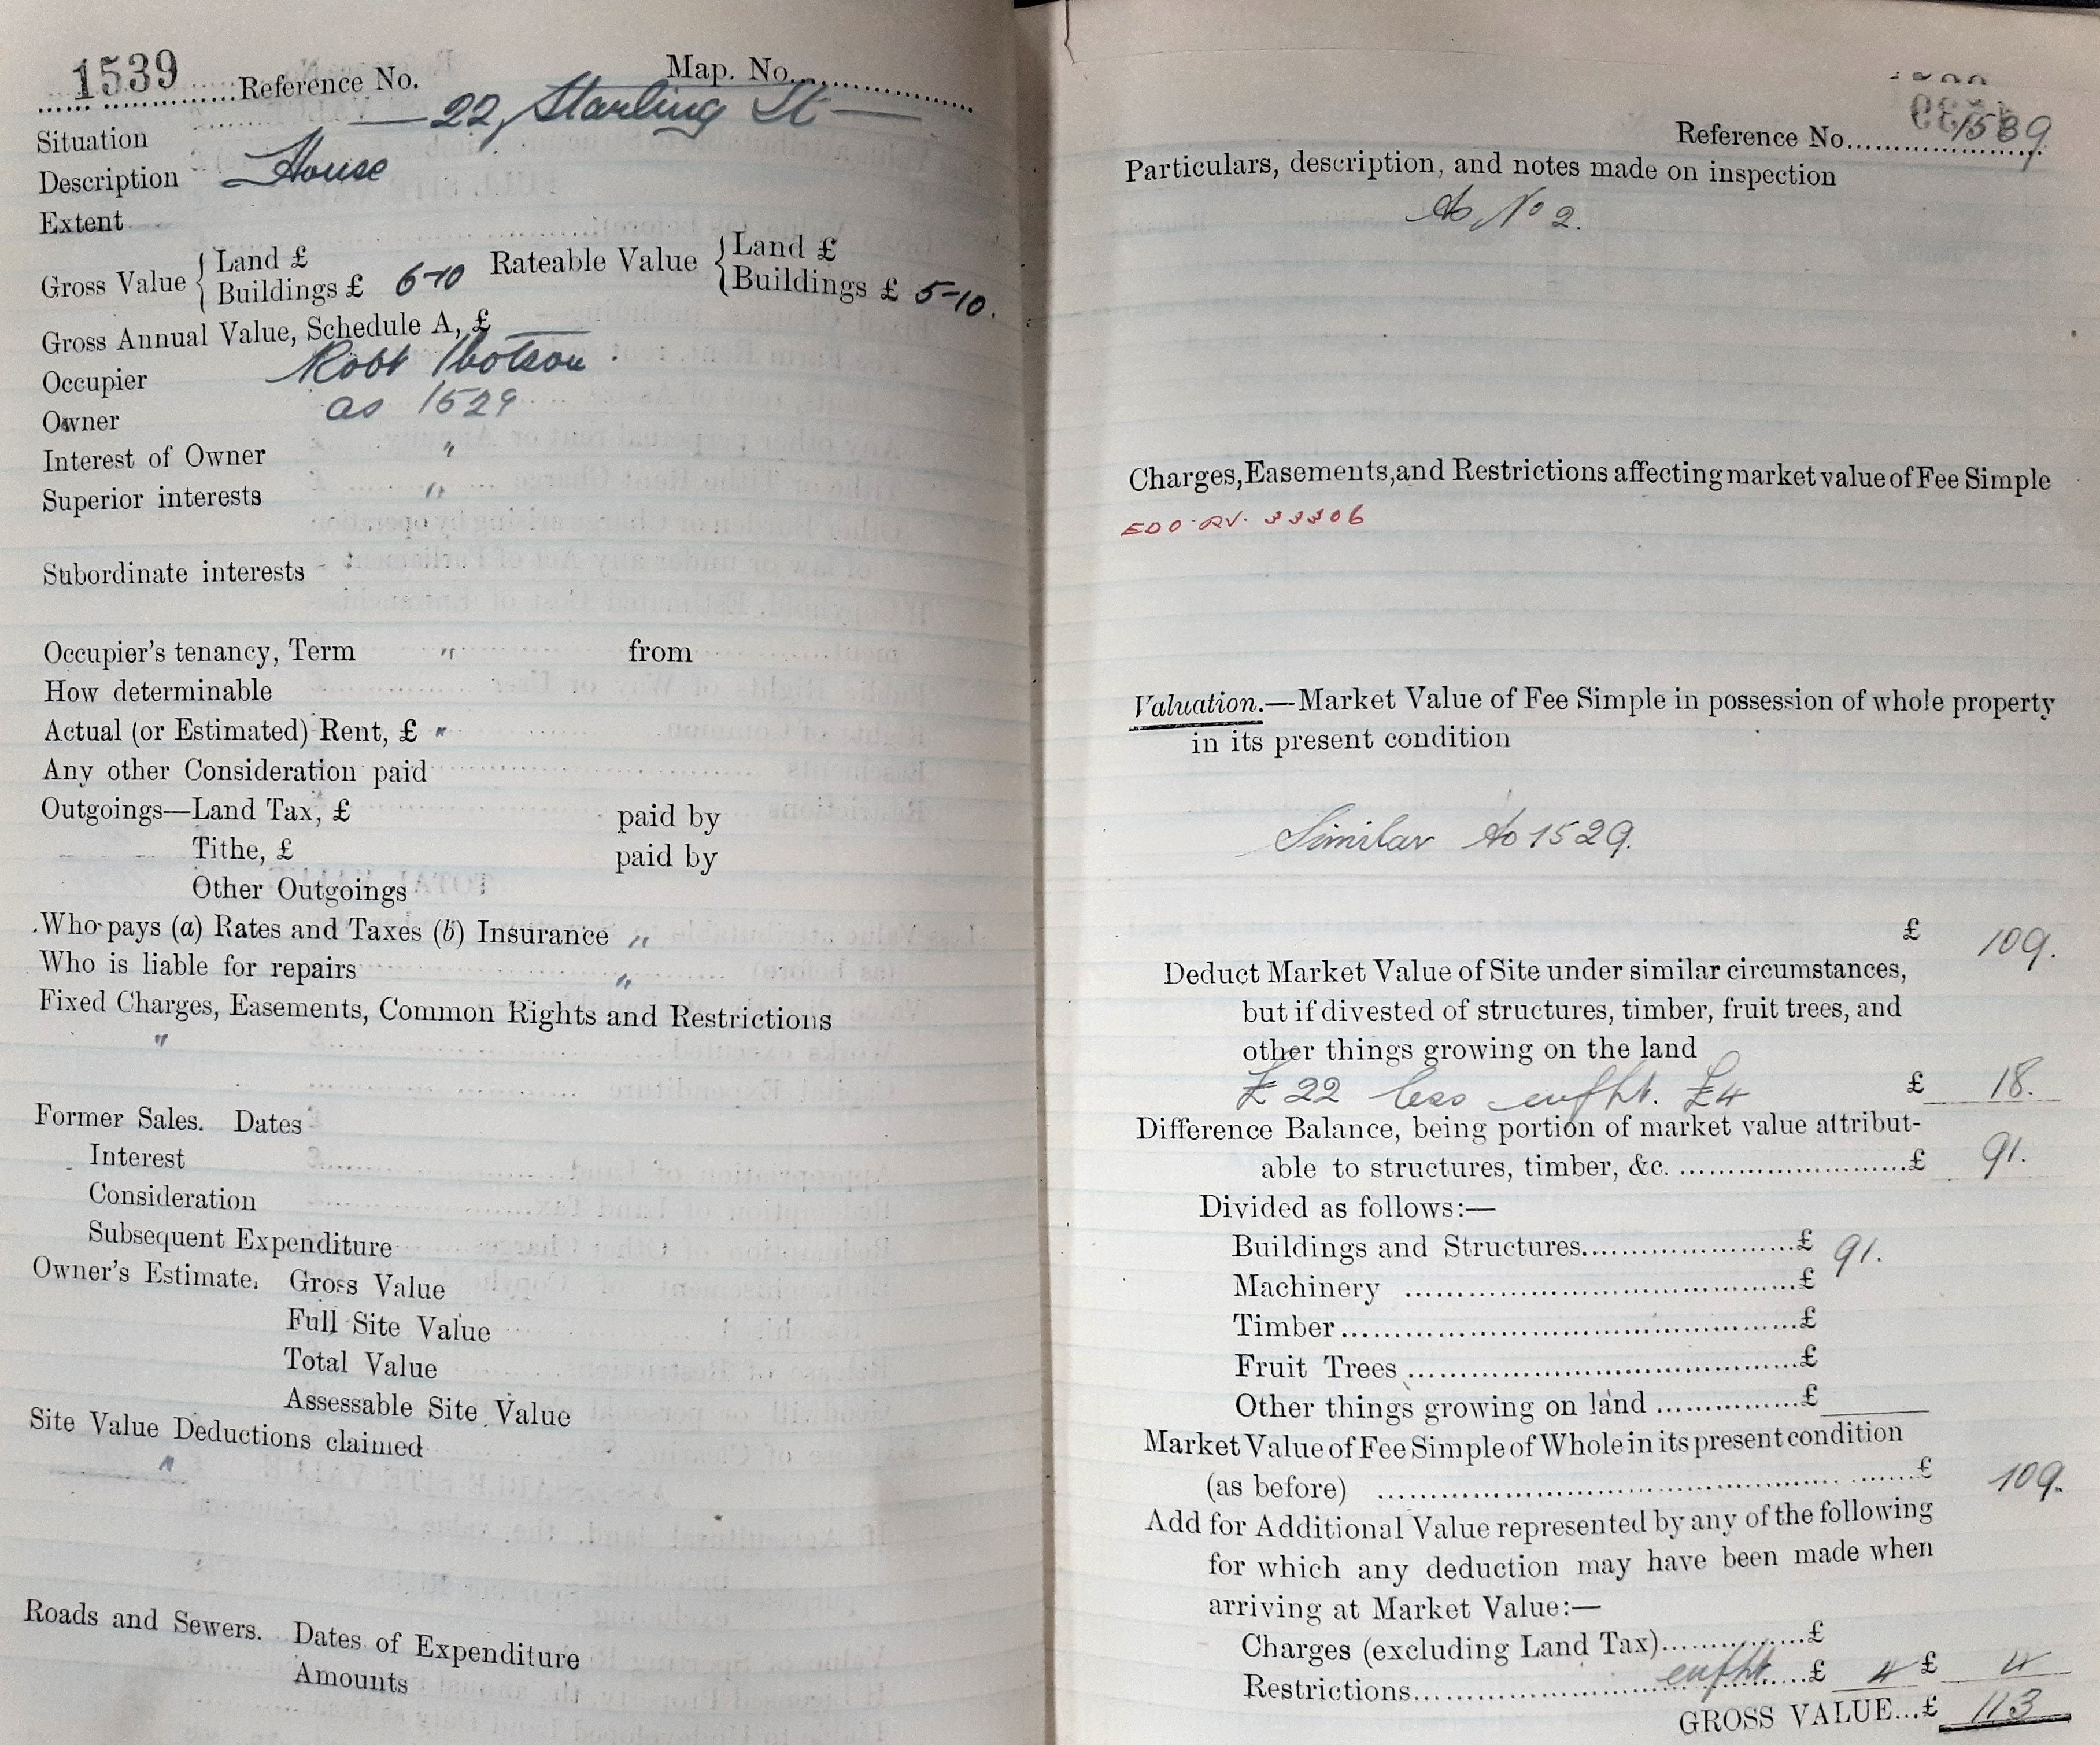 1539 Reference No. Map. No.
Situation 22, Starling St
Description House
Extent
Gross Value { Land £
Buildings £ 6-10
Rateable Value { Land £
Buildings £ 5-10.
Gross Annual Value, Schedule A, £
Occupier Robt Ibotson
Owner as 1529
Interest of Owner "
Superior interests "
Subordinate interests
Occupier's tenancy, Term " from
How determinable
Actual (or Estimated) Rent, £ "
Any other Consideration paid
Outgoings—Land Tax, £ paid by
Tithe, £ paid by
Other Outgoings
Who pays (a) Rates and Taxes (b) Insurance "
Who is liable for repairs "
Fixed Charges, Easements, Common Rights and Restrictions
"
Former Sales. Dates
Interest
Consideration
Subsequent Expenditure
Owner's Estimate. Gross Value
Full Site Value
Total Value
Assessable Site Value
Site Value Deductions claimed
"
Roads and Sewers. Dates of Expenditure
Amounts
Reference No. 1539
Particulars, description, and notes made on inspection
As No 2.
Charges, Easements, and Restrictions affecting market value of Fee Simple
EDO. RV. 33306
Valuation.—Market Value of Fee Simple in possession of whole property
in its present condition
Similar to 1529.
£ 109.
Deduct Market Value of Site under similar circumstances,
but if divested of structures, timber, fruit trees, and
other things growing on the land
£22 less enfht. £4 £ 18.
Difference Balance, being portion of market value attribut-
able to structures, timber, &c. £ 91.
Divided as follows:—
Buildings and Structures £ 91.
Machinery £
Timber £
Fruit Trees £
Other things growing on land £
Market Value of Fee Simple of Whole in its present condition
(as before) £ 109.
Add for Additional Value represented by any of the following
for which any deduction may have been made when
arriving at Market Value:—
Charges (excluding Land Tax) £
Restrictions enfht. £ 4 £ 4
GROSS VALUE...£ 113